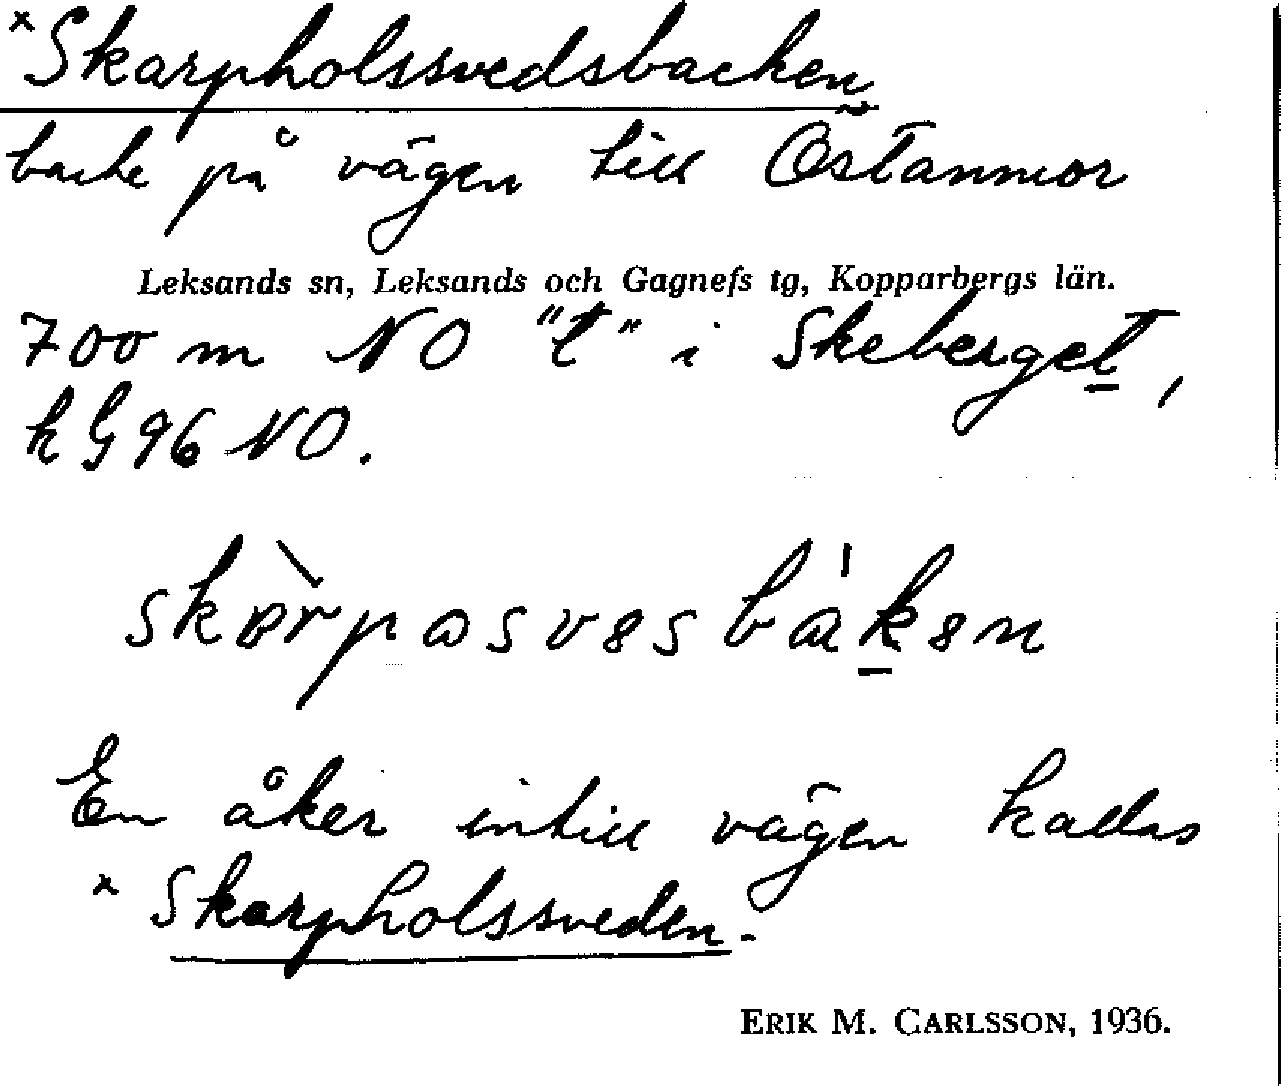 *Skarpholssvedsbacken
backe på vägen till Östanmor
Leksands sn, Leksands och Gagnefs tg, Kopparbergs län.
700 m NO "t" i Skeberget,
k G 96 NO.
En åker intill vägen kallas
*Skarpholssveden.
ERIK M. CARLSSON, 1936.